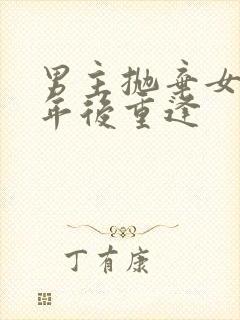 男主抛弃女
年後重逢
丁有康